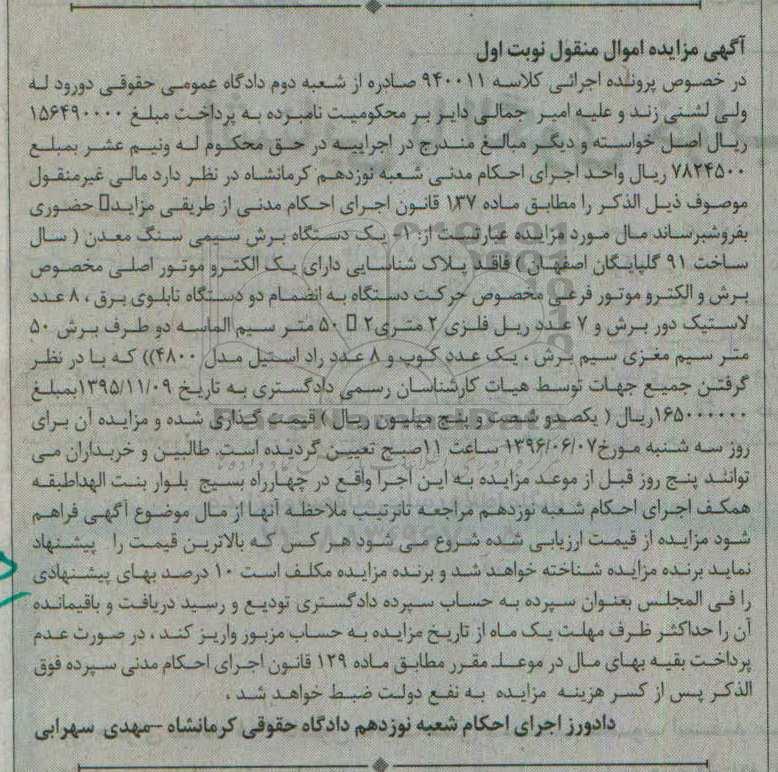 آگهی مزایده اموال منقول نوبت اول
در خصوص پرونده اجرائی کلاسه ۹۴۰۰۱۱ صادره از شعبه دوم دادگاه عمومی حقوقی دورود له
ولی لشنی زند و علیه امیر جمالی دایر بر محکومیت نامبرده به پرداخت مبلغ ۱۵۶۴۹۰۰۰۰
ریال اصل خواسته و دیگر مبالغ مندرج در اجراییه در حق محکوم له ونیم عشر بمبلغ
۷۸۲۴۵۰۰ ریال واحد اجرای احکام مدنی شعبه نوزدهم کرمانشاه در نظر دارد مالی غیرمنقول
موصوف ذیل الذکر را مطابق ماده ۱۳۷ قانون اجرای احکام مدنی از طریقی مزاید حضوری
بفروشبرساند مال مورد مزایده عبارتست از: ۱- یک دستگاه برش سیمی سنگ معدن ( سال
ساخت ۹۱ گلپایگان اصفهان ) فاقد پلاک شناسایی دارای یک الکترو موتور اصلی مخصوص
برش و الکترو موتور فرعی مخصوص حرکت دستگاه به انضمام دو دستگاه تابلوی برق ، ۸ عدد
لاستیک دور برش و ۷ عدد ریل فلزی ۲ متری۲ ۵۰ متر سیم الماسه دو طرف برش ۵۰
متر سیم مغزی سیم برش ، یک عدد کوپ و ۸ عدد راد استیل مدل ۴۸۰۰)) که با در نظر
گرفتن جمیع جهات توسط هیات کارشناسان رسمی دادگستری به تاریخ ۱۳۹۵/۱۱/۰۹بمبلغ
۱۶۵۰۰۰۰۰۰ریال ( یکصدو شصت و پنج میلیون ریال ) قیمت گذاری شده و مزایده آن برای
روز سه شنبه مورخ۱۳۹۶/۰۶/۰۷ ساعت ۱۱صبح تعیین گردیده است. طالبین و خریداران می
توانند پنج روز قبل از موعد مزایده به این اجرا واقع در چهارراه بسیج بلوار بنت الهداطبقه
همکف اجرای احکام شعبه نوزدهم مراجعه تاترتیب ملاحظه آنها از مال موضوع آگهی فراهم
شود مزایده از قیمت ارزیابی شده شروع می شود هر کس که بالاترین قیمت را پیشنهاد
نماید برنده مزایده شناخته خواهد شد و برنده مزایده مکلف است ۱۰ درصد بهای پیشنهادی
را فی المجلس بعنوان سپرده به حساب سپرده دادگستری تودیع و رسید دریافت و باقیمانده
آن را حداکثر ظرف مهلت یک ماه از تاریخ مزایده به حساب مزبور واریز کند ، در صورت عدم
پرداخت بقیه بهای مال در موعد مقرر مطابق ماده ۱۲۹ قانون اجرای احکام مدنی سپرده فوق
الذکر پس از کسر هزینه مزایده به نفع دولت ضبط خواهد شد .
دادورز اجرای احکام شعبه نوزدهم دادگاه حقوقی کرمانشاه –مهدی سهرابی